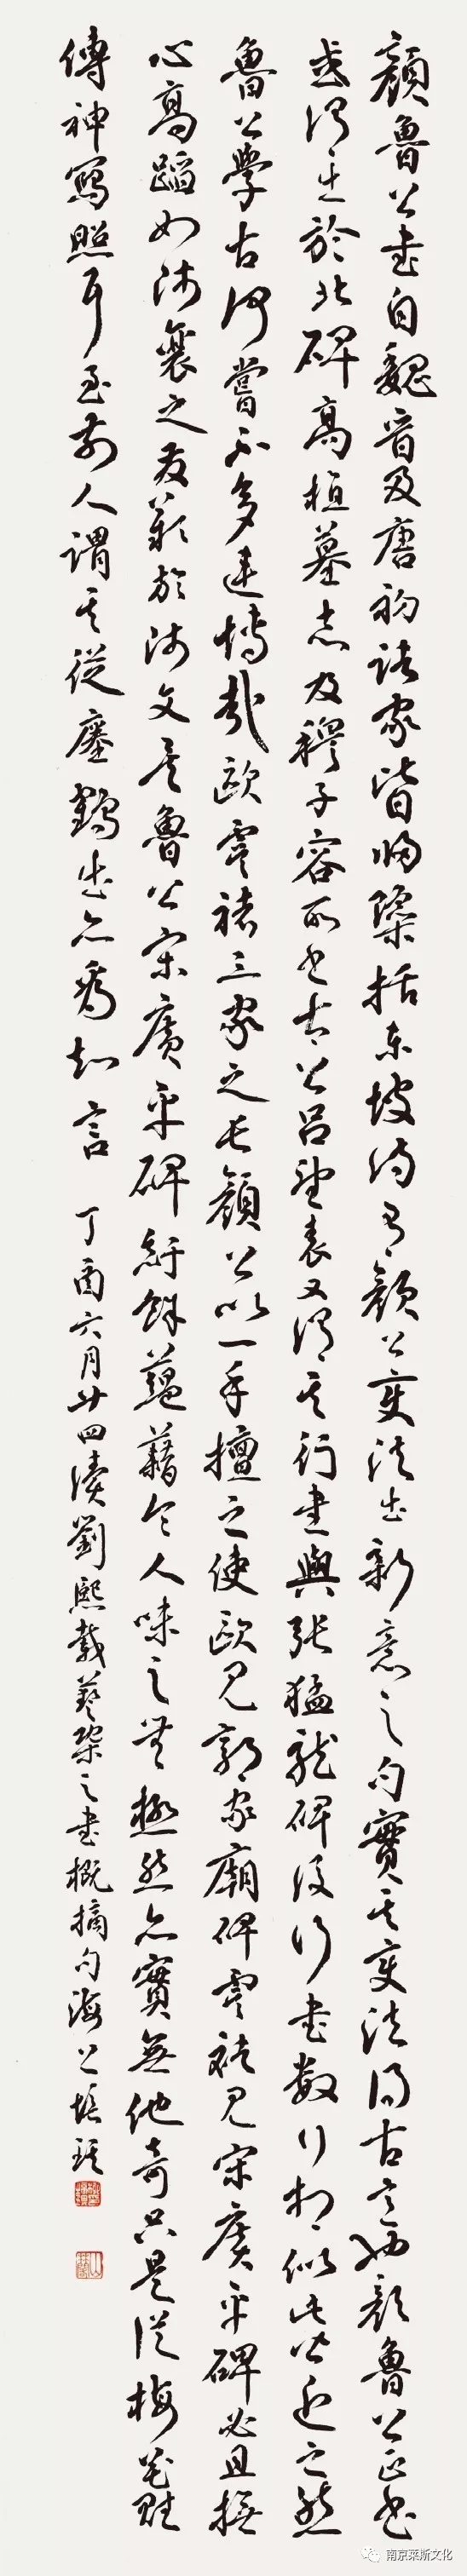 顏魯公書自魏晉及唐初諸家皆歸隱括東坡詩有顏公變法出新意之句實其變法得古意也顏魯公正書
或謂出於北碑高植墓志及穆子容所書太公呂望表又謂其行書與張猛龍碑後行書數行相似此皆近之然
魯公學古何嘗不多連博貫哉歐虞褚三家之長顏公以一手擅之使歐見郭家廟碑虞褚見宋廣平碑必且撫
心高蹈如師襄之發歎於師文矣魯公宋廣平碑紆餘蘊藉令人味之無極然亦實無他奇只是從梅花賦
傳神寫照耳至前人謂其從瘞鶴出亦為知言
丁酉六月廿四讀劉熙載藝概之書概摘句海公培
南京莱斯文化